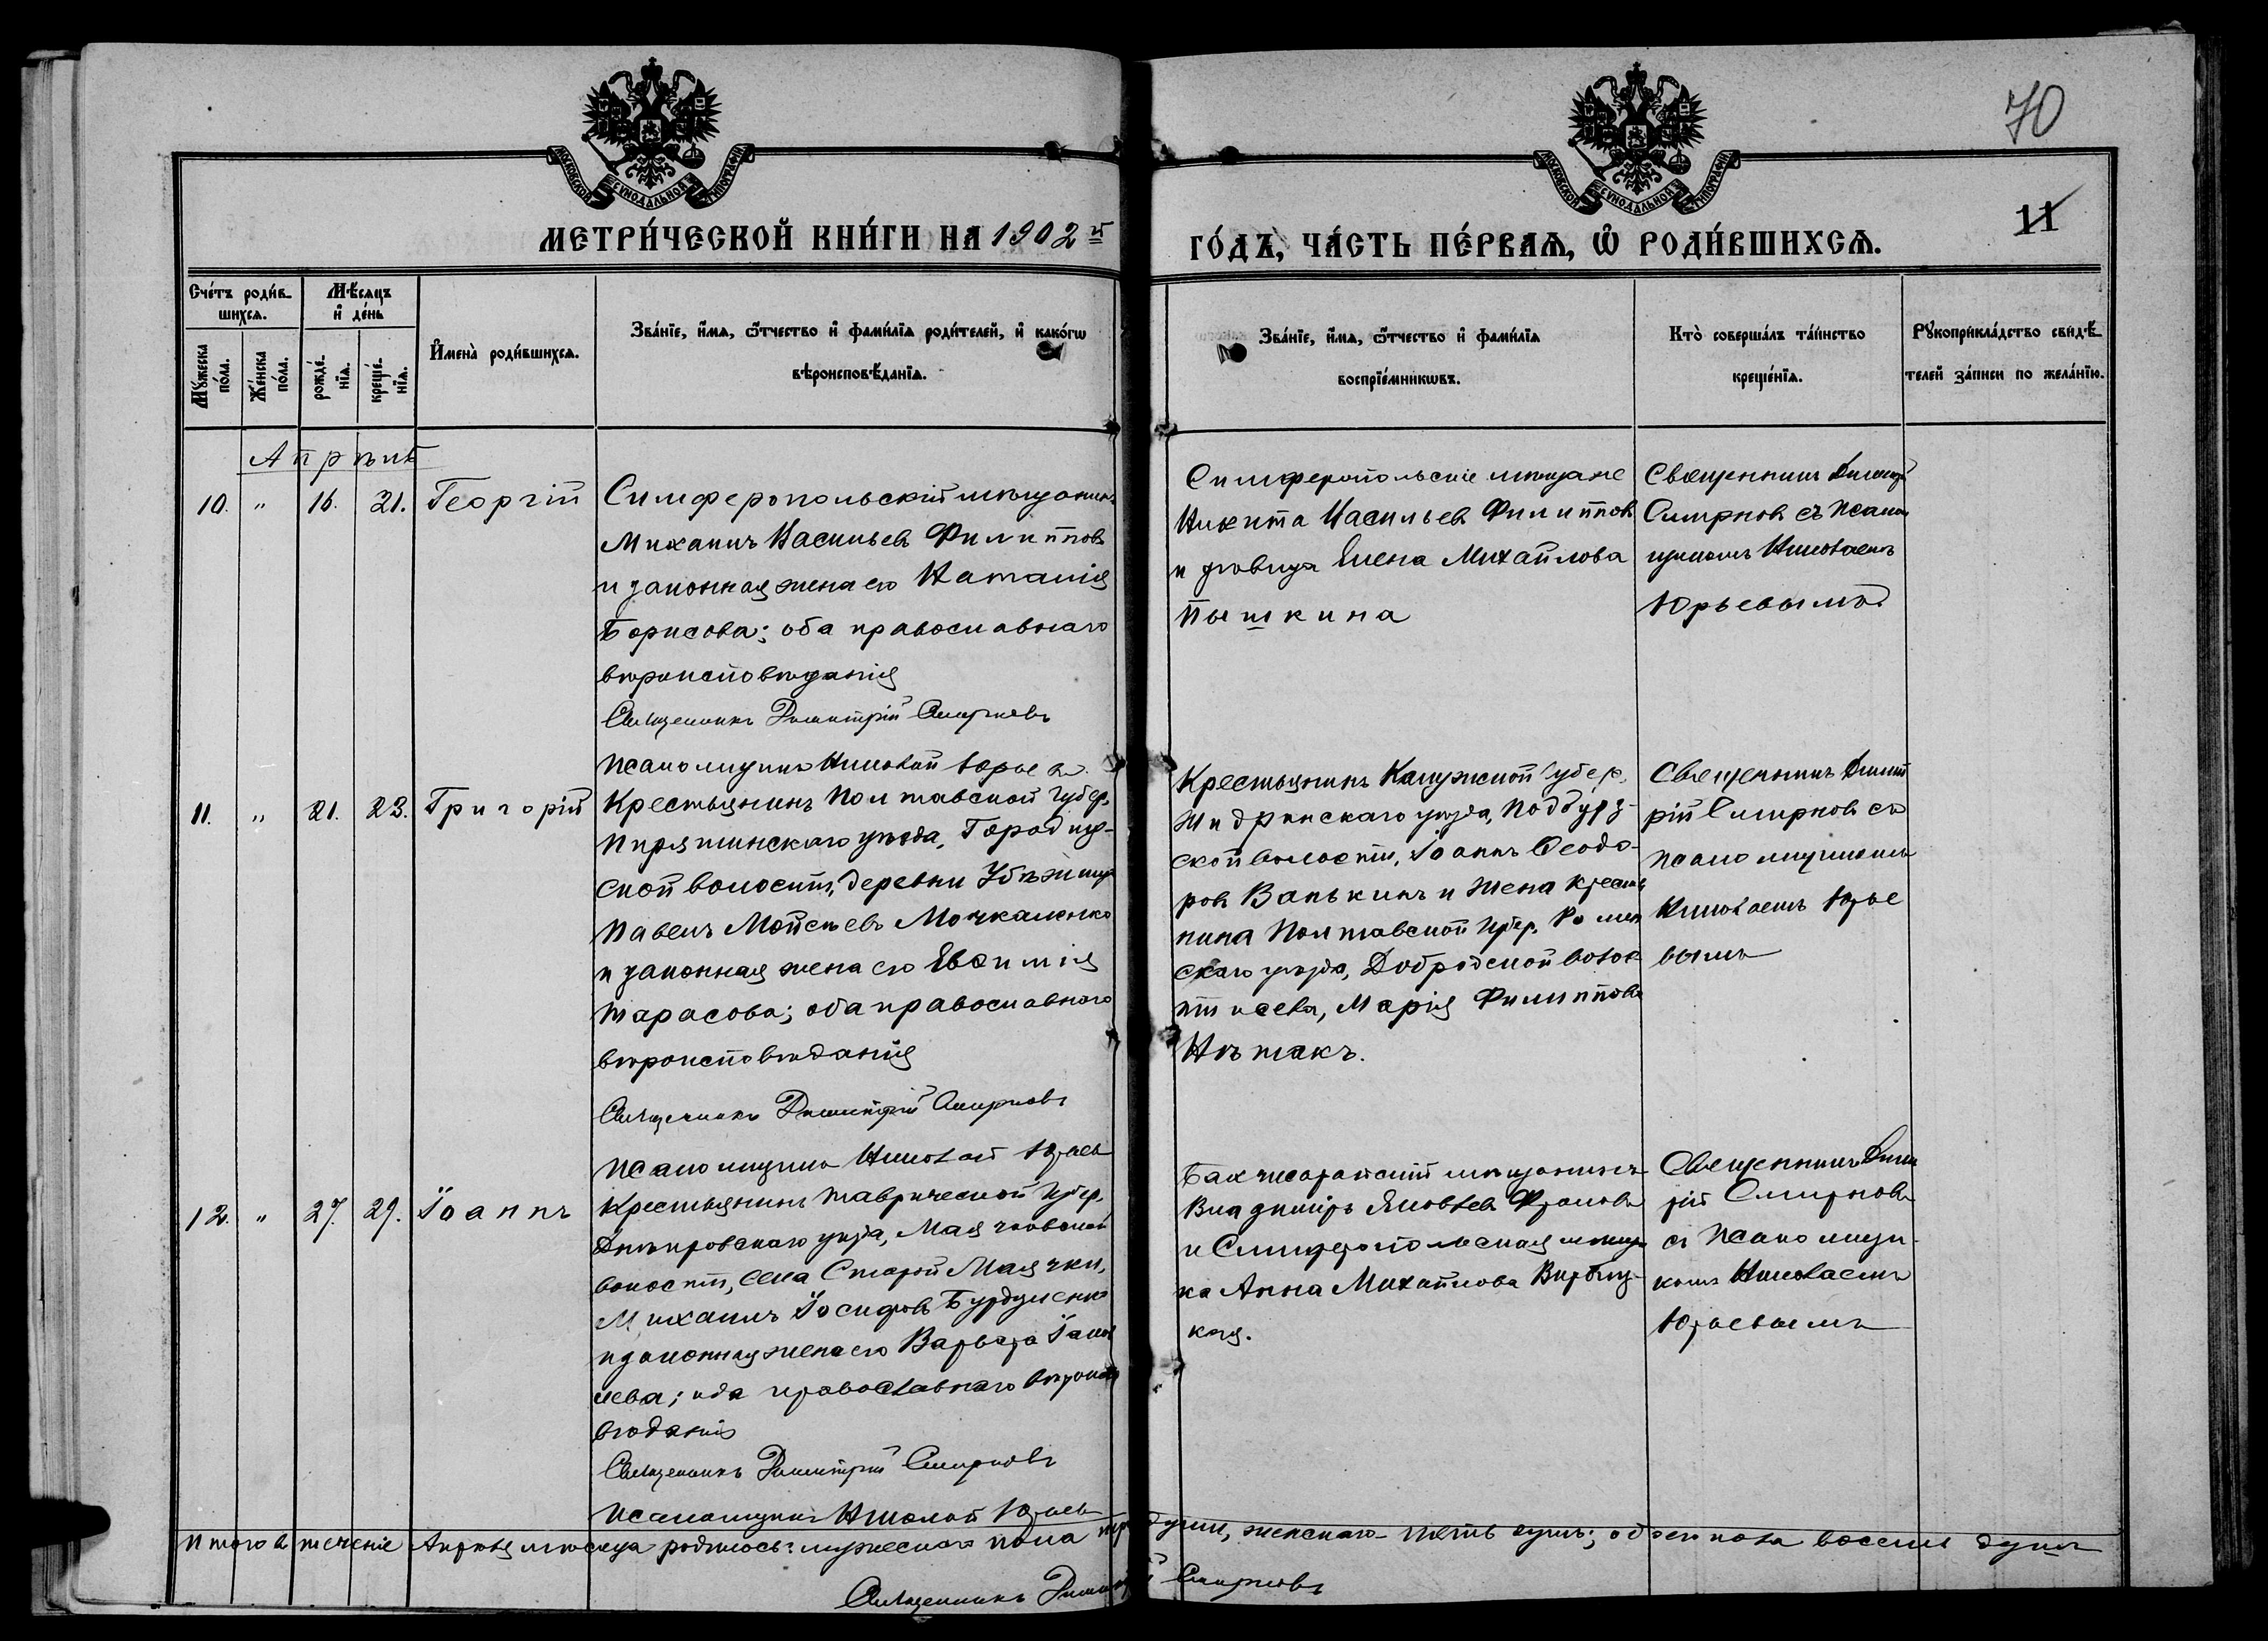 70
11
МОСКОВСКОЙ СѴНОДАЛЬНОЙ ТИПОГРАФІИ
МОСКОВСКОЙ СѴНОДАЛЬНОЙ ТИПОГРАФІИ
МЕТРИ́ЧЕСКОЙ КНИ́ГИ НА 1902 й
ГО́ДЪ, ЧА́СТЬ ПЕ́РВАѦ, Ѽ РОДИ́ВШИХСѦ.
Счéтъ роди́в-
шихсѧ.
Мѣ́сѧцъ
и҆ де́нь
Мꙋ́жеска
по́ла.
Же́нска
по́ла.
рожде́-
нїѧ.
креще́-
нїѧ.
И҆мена̀ роди́вшихсѧ.
Зва́нїе, и҆́мѧ, ѻ҆́тчество и҆ фами́лїѧ роди́телей, и҆ како́гѡ
вѣроисповѣ́данїѧ.
Зва́нїе, и҆́мѧ, ѻ҆́тчество и҆ фами́лїѧ
воспрїе́мникѡвъ.
Кто̀ соверша́лъ та́инство
креще́нїѧ.
Рꙋкоприкла́дство свидѣ́-
телей за́писи по жела́нїю.
Апрѣль
10. " 16. 21. Георгій
Симферопольскій мѣщанинъ
Михаилъ Васильевъ Филипповъ
и законная жена его Наталія
Борисова; оба православнаго
вѣроисповѣданія
Священникъ Димитрій Смирновъ
Псаломщикъ Николай Юрьевъ
Симферопольскіе мѣщане
Никита Васильевъ Филипповъ
и вдовица Елена Михайлова
Пышкина
Священникъ Димитрій
Смирновъ съ псалом
щикомъ Николаемъ
Юрьевымъ
11. " 21. 23. Григорій
Крестьянинъ Полтавской губер.
Пирятинскаго уѣзда, Городищ-
ской волости, деревни
Павелъ Мойсеевъ Мочкаленко
и законная жена его Евѳимія
Тарасова; оба православнаго
вѣроисповѣданія
Священникъ Димитрій Смирновъ
Псаломщикъ Николай Юрьевъ
Крестьянинъ Калужской губер.
Жидринскаго уѣзда, Подбуж-
ской волости, Іоаннъ Ѳеодо-
ровъ Ванькинъ и жена крестья
нина Полтавской губер. Ромен
скаго уѣзда, волос
ти и села, Марія Филиппова
Священникъ Димит
рій Смирновъ съ
псаломщикомъ
Николаемъ Юрье
вымъ
12. " 27. 29. Іоаннъ
Крестьянинъ Таврической губер.
Днѣпровскаго уѣзда, Маячковской
волости, села Старой Маячки,
Михаилъ Іосифовъ Бурдуленко
и законная жена его Варвара
лева; оба православнаго вѣроиспо
вѣданія
Священникъ Димитрій Смирновъ
Псаломщикъ Николай Юрьевъ
Бахчисарайскій мѣщанинъ
Владиміръ Яковлевъ
и Симферопольская мѣщан
ка Анна Михайлова
кая.
Священникъ Димит
рій Смирновъ
съ псаломщи-
комъ Николаемъ
Юрьевымъ
Итого въ теченіе Апрѣля мѣсяца родилось: мужескаго пола три души, женскаго пять душъ; обоего пола восемь душъ
Священникъ Димитрій Смирновъ